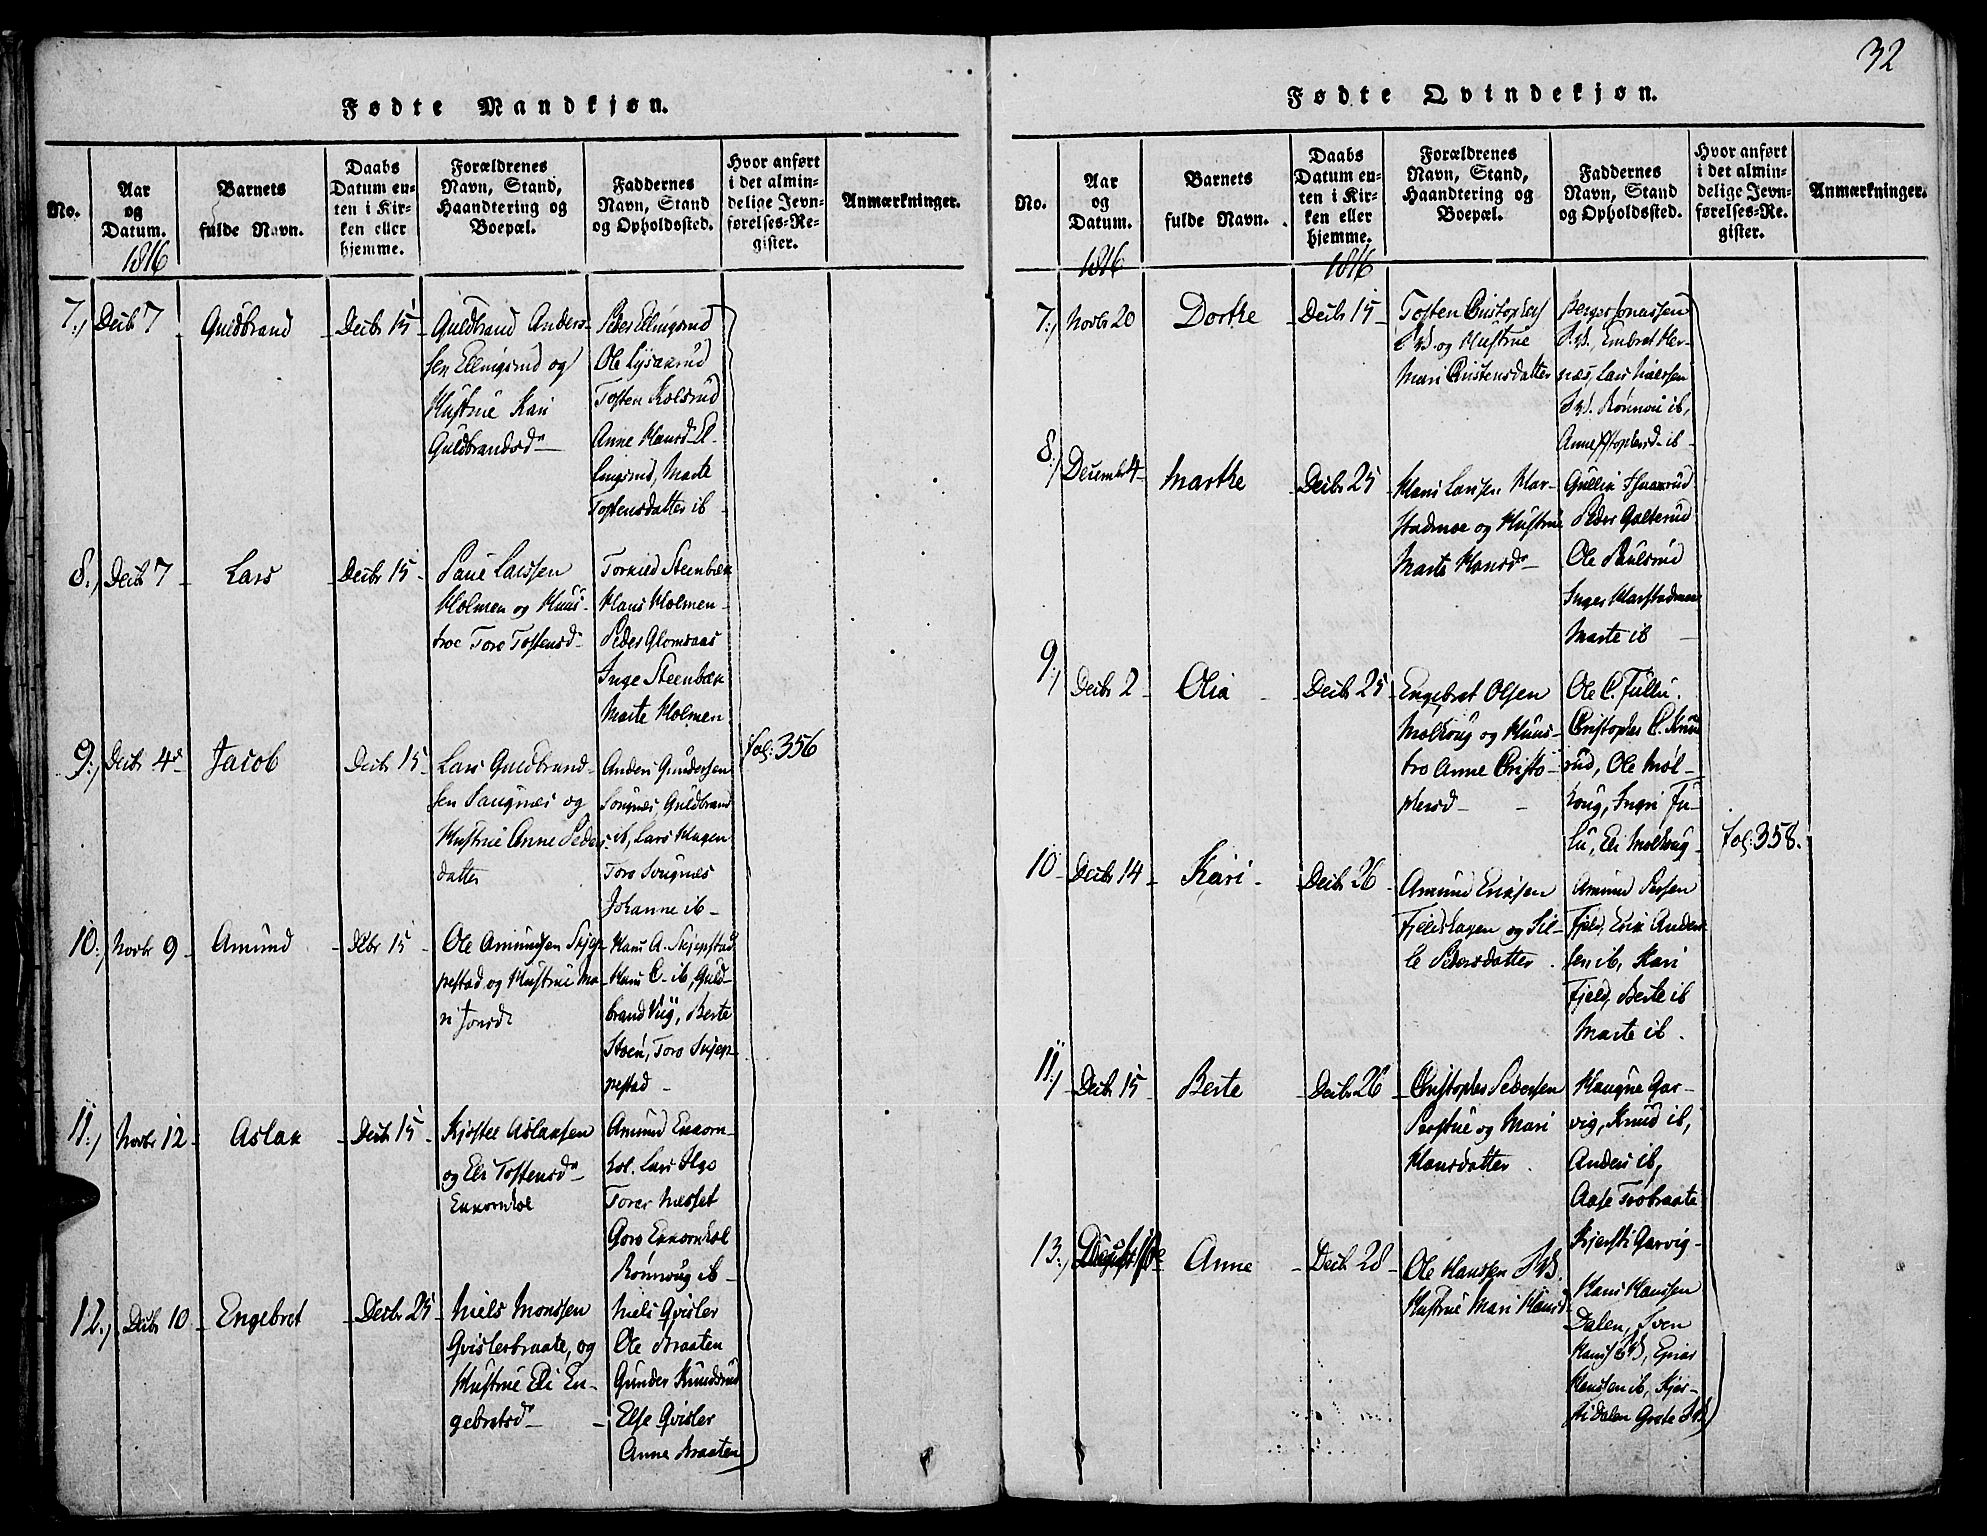 32
Fødte Mandkjøn.
No.
Aar
og
Datum.
1816
Barnets
fulde Navn.
Daabs
Datum en-
ten i Kir-
ken eller
hjemme.
Forældrenes
Navn, Stand,
Haandtering og
Boepæl.
Faddernes
Navn, Stand
og Opholdssted.
Hvor anført
i det almin-
delige Jevn-
førelses-Re-
gister.
Anmærkninger.
7.) Decbr 7 - Guldbrand - Decbr 15
Guldbrand Anders-
sen Ellingsrud og
Hustrue Kari
Guldbrandsd
Peder Ellingsrud
Ole Lysakrud
Tosten Kolsrud
Anne Hansd El-
lingsrud, Marte
Tostensdatter ib -
8.) Decbr 7 - Lars - Decbr 15 -
Paul Larssen
Holmen og Huus-
troe Toro Tostensd
Torkild Steenbæk
Hans Holmen -
Peder Glomsaas
Inge Steenbæk
Marte Holmen
9.) Decbr 4de Jacob Decbr 15 -
Lars Guldbrand-
sen Sougnæs og
Hustrue Anne Peders-
datter
Anders Gundersen
Sougnæs Guldbrand
ib, Lars Hagen
Toro Sougnæs
Johanne ib -
fol: 356
10.) Novbr 9 - Amund - Dcbr 15 -
Ole Amundsen Skjep-
pestad og Hustrue Ma-
ri Jonsd
Hans A. Skjepstad
Hans C. ib, Guld-
brand Viig, Berte
Stoen, Toro Skjep-
pestad -
11.) Novbr 12 - Aslak - Decbr 15 -
Kjostel Aslaksen
og Eli Tostensd
Ekornhol
Amund Ekorn-
hol. Lars Ilgo
Torer Næsset
Goro Ekornhol
Rønnoug ib -
12.) Decbr 10 - Engebret - Decbr 25 -
Niels Monssen
Qvislerbraate, og
Hustrue Eli En-
gebretsd -
Niels Qvisler
Ole Braaten
Gunder Knudsrud
Else Qvisler
Anne Braaten
Fødte Qvindekjøn.
No.
Aar
og
Datum.
1816
Barnets
fulde Navn.
Daabs
Datum en-
ten i Kir-
ken eller
hjemme.
1816
Forældrenes
Navn, Stand,
Haandtering og
Boepæl.
Faddernes
Navn, Stand
og Opholdssted.
Hvor anført
i det almin-
delige Jevn-
førelses-Re-
gister.
Anmærkninger.
7.) Novbr 20 Dorthe - Decbr 15 -
Tosten Christophers
og Hustrue
Mari Christensdatter
Berger Jonassen
Embret Her-
næs, Lars Nielssen
Rønnou ib,
Anne ib -
8.) Decembr 4 - Marthe - Decbr 25 -
Hans Larssen Har-
stadmoe og Hustrue
Marte Hansd -
Gullik
Peder Galterud
Ole Paulsrud
Inger Harstadmoe
Marte ib -
9.) Decbr 2 - Olia - Decbr 25 -
Engebret Olsen
Molkoug og Huus-
tro Anne Christo-
phersd -
Ole C. Fullu.
Christopher C. Knud
rud, Ole Mol-
koug, Ingri Fu-
lu, Eli Molkoug -
fol: 358.
10 Decbr 14 - Kari - Decbr 26 -
Amund Eriksen
Fjeldshagen og Sil-
le Pedersdatter
Amund Persen
Fjeld, Erik Anders-
sen ib, Kari
Fjeld, Berte ib
Marte ib.
11.) Decbr 15 - Berte - Decbr 26 -
Christopher Pedersen
Perstue og Mari
Hansdatter
Haugne Gar-
vig, Knud ib,
Anders ib,
Aase Trobraate
Kjersti Garvig -
13.) Anne - Decbr 28 -
Ole Hanssen
Hustrue Mari Hansd
Hans Hanssen
Dalen, Sven
Einar
Hanssen ib, Kjer-
sti Dalen Grete